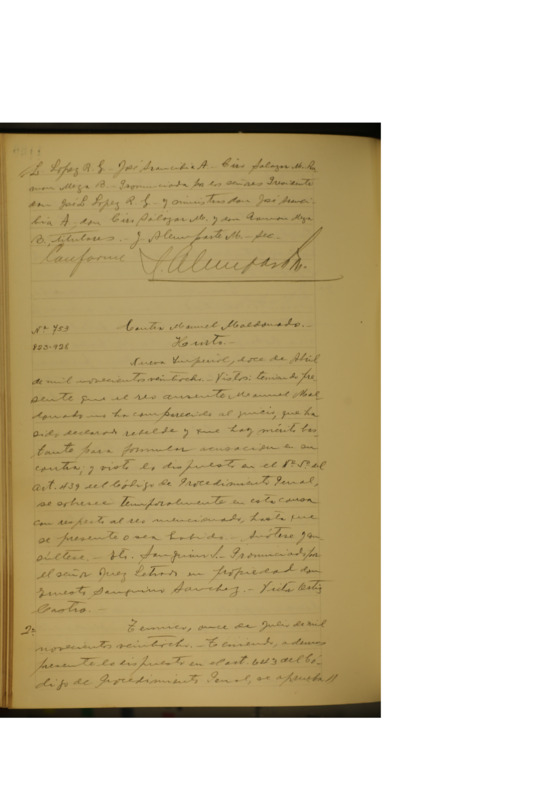 L. Lopez R. G. - José Arancibia A. - Ciro Salazar M. Ra-
mon Meza B. - Pronunciada por los señores Presidente
don José L. Lopez R. G. - y ministros don José Aranci-
bia A., don Ciro Salazar M. y don Ramon Meza
B., titulares. - J. Alemparte M. - Sec.
Conforme J. Alemparte M.
Nº 789 Contra Manuel Maldonado. -
823-926 Hurto. -
Nueva Imperial, doce de Abril
de mil novecientos veintiocho. - Vistos: teniendo pre-
sente que el reo ausente Manuel Mal-
donado no ha comparecido al juicio, que ha
sido declarado rebelde y que hay mérito bas-
tante para formular acusacion en su
contra, y visto lo dispuesto en el Nº 5º del
art. 439 del Código de Procedimiento Penal,
se sobresee temporalmente en esta causa
con respecto al reo mencionado, hasta que
se presente o sea habido. - Anótese y con-
súltese. - Sanguino S. Pronunciado por
el señor Juez Letrado en propiedad don
Ernesto Sanguino Sanchez. -
Castro. -
2ª Temuco, once de Julio de mil
novecientos veintiocho. - Teniendo, ademas
presente lo dispuesto en el art. 443 del Có-
digo de Procedimiento Penal, se aprueba